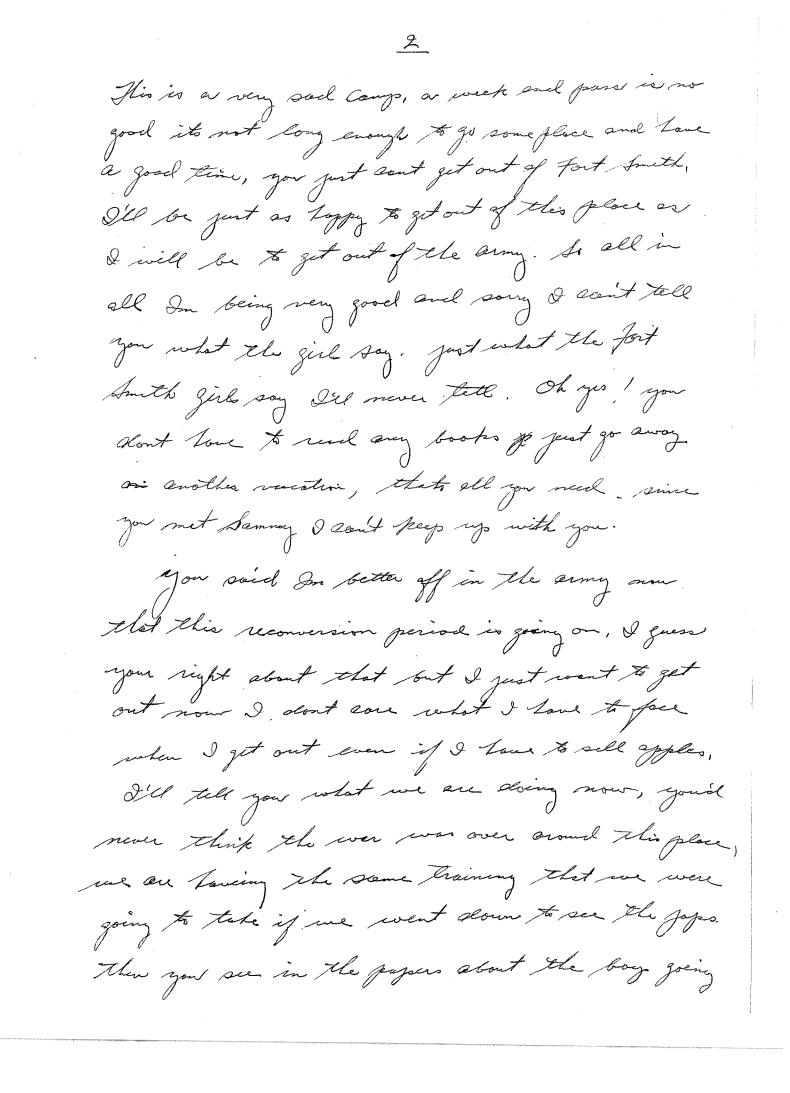 2
This is a very sad camp, a week end pass is no
good its not long enough to go some place and have
a good time, you just cant get out of Fort Smith.
I'll be just as happy to get out of this place as
I will be to get out of the army. So all in
all Im being very good and sorry I can't tell
you what the girl say. just what the Fort
Smith girls say I'll never tell. Oh yes! you
dont have to read any books just go away
on another vacation, thats all you need. since
you met Sammy I can't keep up with you.
You said Im better off in the army now
that this reconversion period is going on, I guess
your right about that but I just want to get
out now I dont care what I have to face
when I get out even if I have to sell apples.
I'll tell you what we are doing now, you'd
never think the war was over around this place,
we are haveing the same training that we were
going to take if we went down to see the japs.
then you see in the papers about the boys going